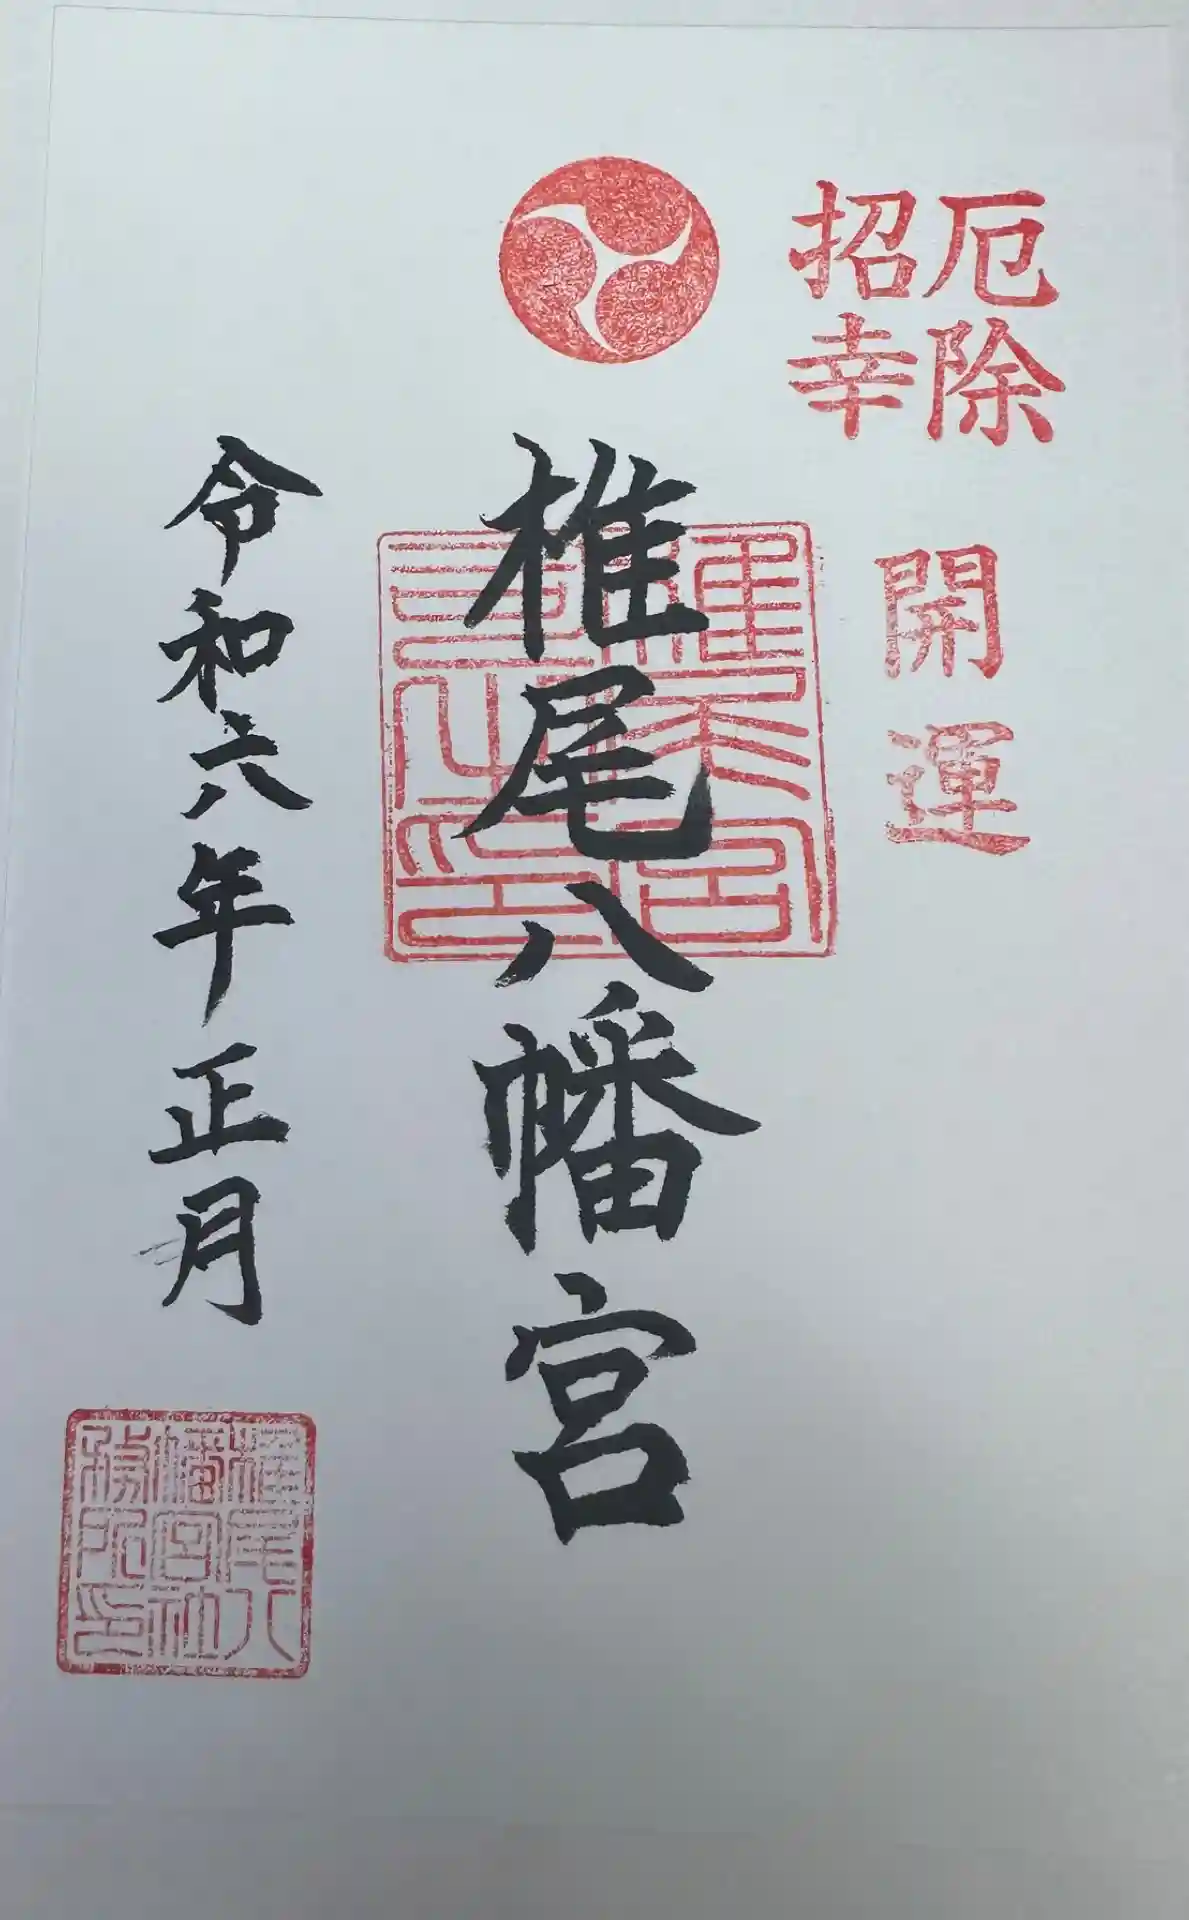 厄除
招幸
開運
椎尾八幡宮
令和六年正月
椎尾八
幡宮社
務所印